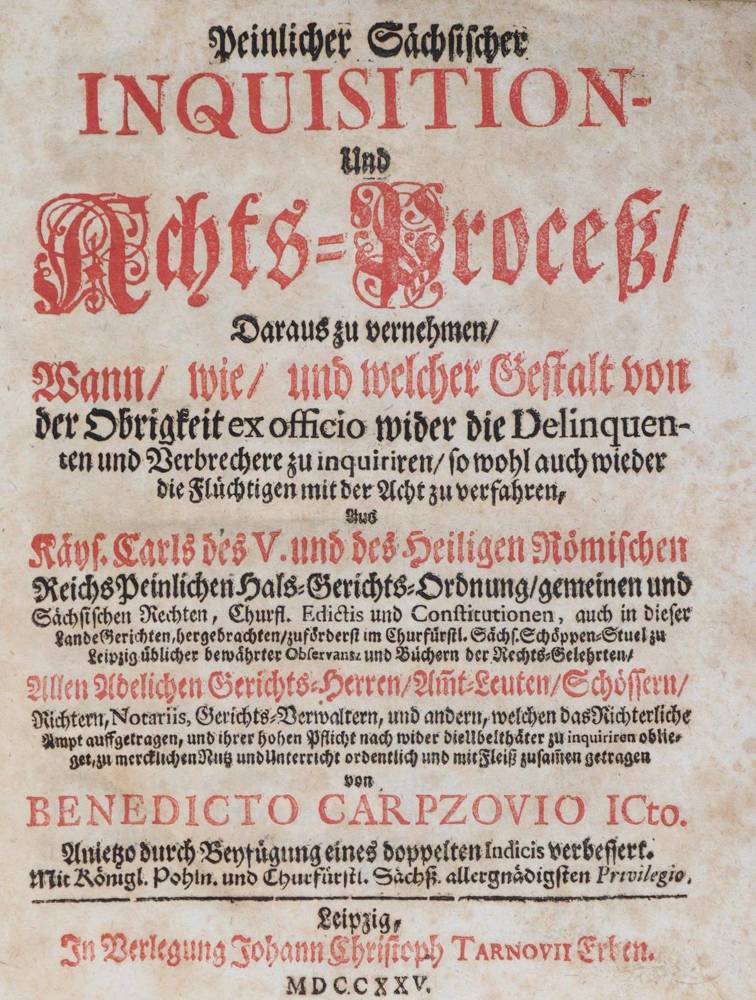 Peinlicher Sächsischer
INQUISITION-
Und
Achts-Proceß/
Daraus zu vernehmen/
Wann/ wie/ und welcher Gestalt von
der Obrigkeit ex officio wider die Delinquen-
ten und Verbrechere zu inquiriren/ so wohl auch wieder
die Flüchtigen mit der Acht zu verfahren,
Aus
Käys. Carls des V. und des Heiligen Römischen
Reichs Peinlichen Hals-Gerichts-Ordnung/ gemeinen und
Sächsischen Rechten, Churfl. Edictis und Constitutionen, auch in dieser
Lande Gerichten, hergebrachten/ zuförderst im Churfürstl. Sächs. Schöppen-Stuel zu
Leipzig üblicher bewährter Observantz und Büchern der Rechts-Gelehrten/
Allen Adelichen Gerichts-Herren/ Am̃t-Leuten/ Schössern/
Richtern, Notariis, Gerichts-Verwaltern, und andern, welchen das Richterliche
Ampt auffgetragen, und ihrer hohen Pflicht nach wider die Ubelthäter zu inquiriren oblie-
get, zu mercklichen Nutz und Unterricht ordentlich und mit Fleiß zusam̃en getragen
von
BENEDICTO CARPZOVIO ICto.
Anietzo durch Beyfügung eines doppelten Indicis verbessert.
Mit Königl. Pohln. und Churfürstl. Sächß. allergnädigsten Privilegio.
Leipzig,
In Verlegung Johann Christoph TARNOVII Erben.
MDCCXXV.